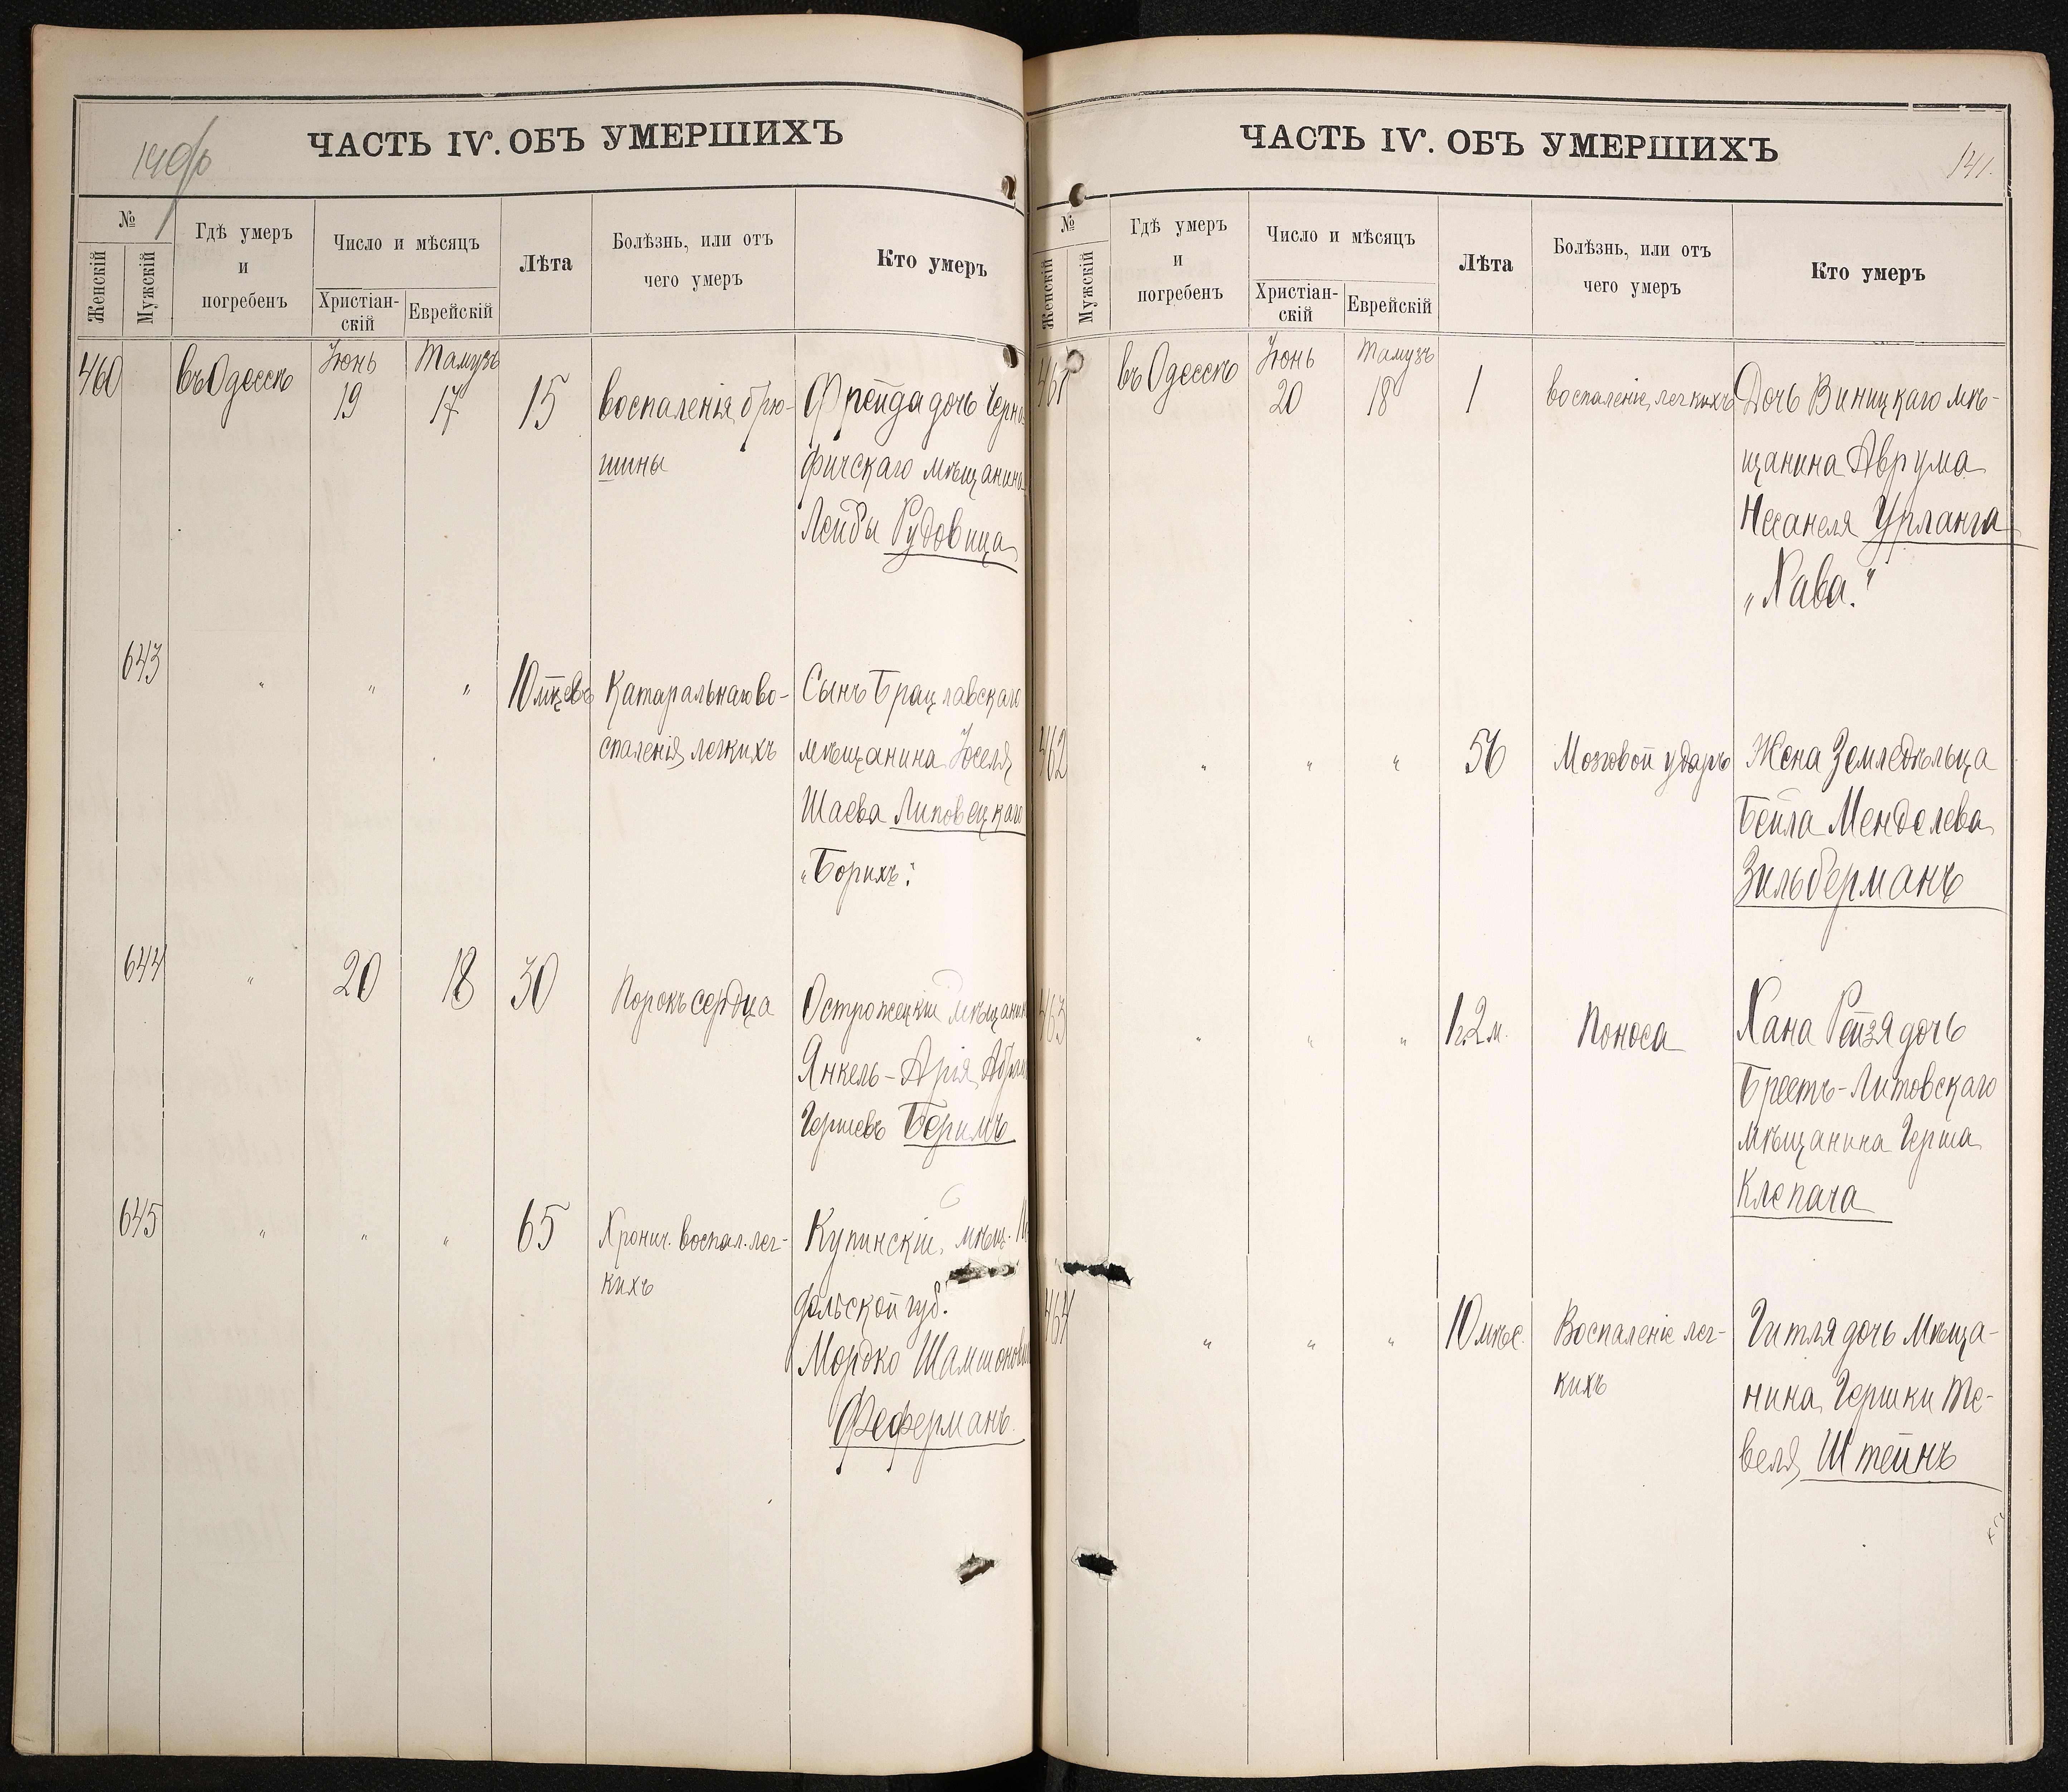 140/б
ЧАСТЬ IV. ОБЪ УМЕРШИХЪ
№
Женскій
Мужскій
Гдѣ умеръ
и
погребенъ
Число и мѣсяцъ
Христіан-
скій
Еврейскій
Лѣта
Болѣзнь, или отъ
чего умеръ
Кто умеръ
460 въ Одессѣ Іюнь 19 Тамузъ 17 15
воспаленія брю-
шины
Фрейда дочь
мѣщанина
Лейбы Рудовица
643 " " " 10 мѣцевъ
Катаральнаго во-
спаленія легкихъ
Сынъ Брацлавскаго
мѣщанина Іоселя
Шаева Липовецкаго
„Борихъ“.
644 " 20 18 30
Порокъ сердца
Острожецкій мѣщанин
Янкель-Арія
Гершевъ Беримъ
645 " " " 65
Хронич. воспал. лег-
кихъ
Купинскій мѣщ. П
дольской губ.
Мордко Шамшонови
Феферманъ.
141.
ЧАСТЬ IV. ОБЪ УМЕРШИХЪ
№
Женскій
Мужскій
Гдѣ умеръ
и
погребенъ
Число и мѣсяцъ
Христіан-
скій
Еврейскій
Лѣта
Болѣзнь, или отъ
чего умеръ
Кто умеръ
461 въ Одессѣ Іюнь 20 Тамузъ 18 1
воспаленіе легкихъ
Дочь Виницкаго мѣ-
щанина Аврума
Несанеля Урланга
„Хава.“
462 " " " 56
Мозговой ударъ
Жена Земледѣльца
Бейла Менделева
Зильберманъ
463 " " " 1 г. 2 м.
Поноса
Хана Рейзя дочь
Брестъ-Литовскаго
мѣщанина Герша
Клепача
464 " " " 10 мѣс.
Воспаленіе лег-
кихъ
Гитля дочь Мѣща-
нина Гершки Те-
веля Штейнъ